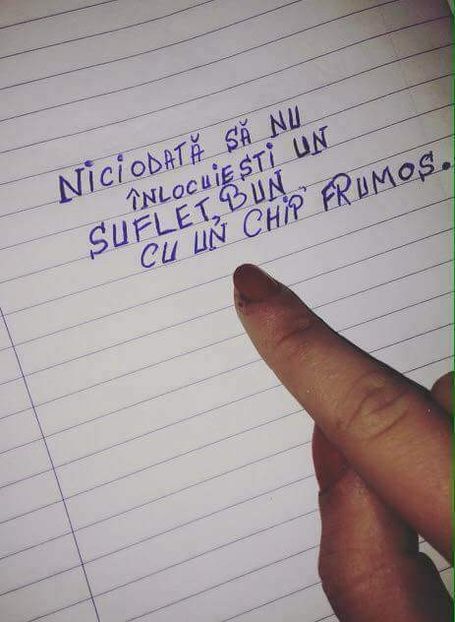 NICIODATĂ SĂ NU
ÎNLOCUIEȘTI UN
SUFLET, BUN
CU UN CHIP, FRUMOS.